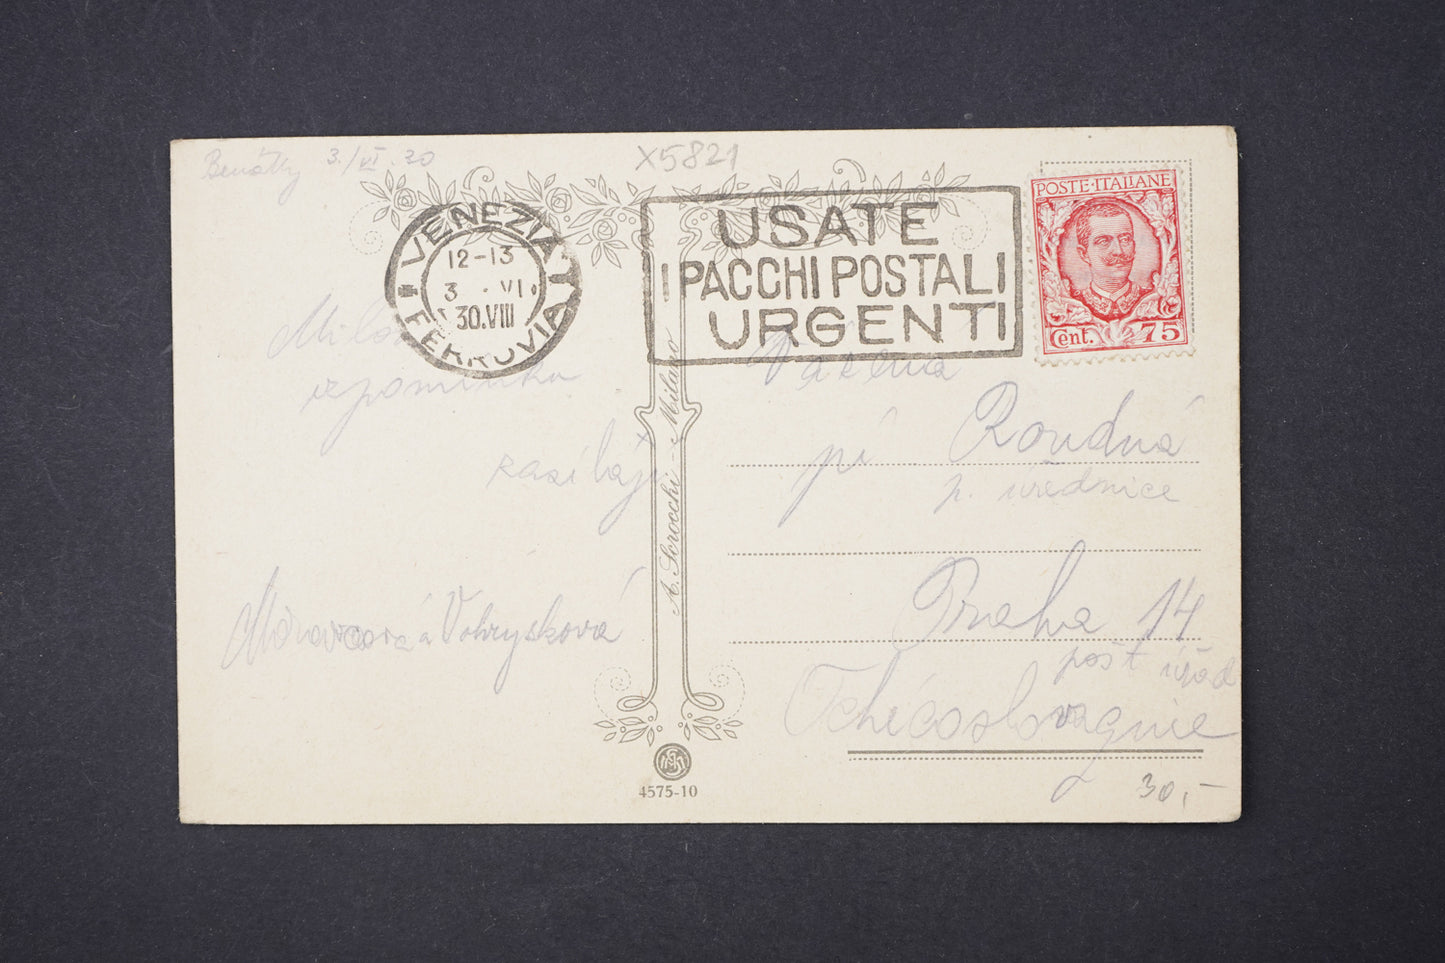 Benátky 3./VI. 30
X5821
VENEZIA
FERROVIA
12-13
3 . VI
30.VIII
USATE
I PACCHI POSTALI
URGENTI
POSTE·ITALIANE
Cent. 75
vzpomínku
zasílají
a Vohryzková
A. Scrocchi - Milano
Vážená
pí Roudná
p. úřednice
Praha 14
pošt úřad
Tchécoslovaquie
4575-10
30,-